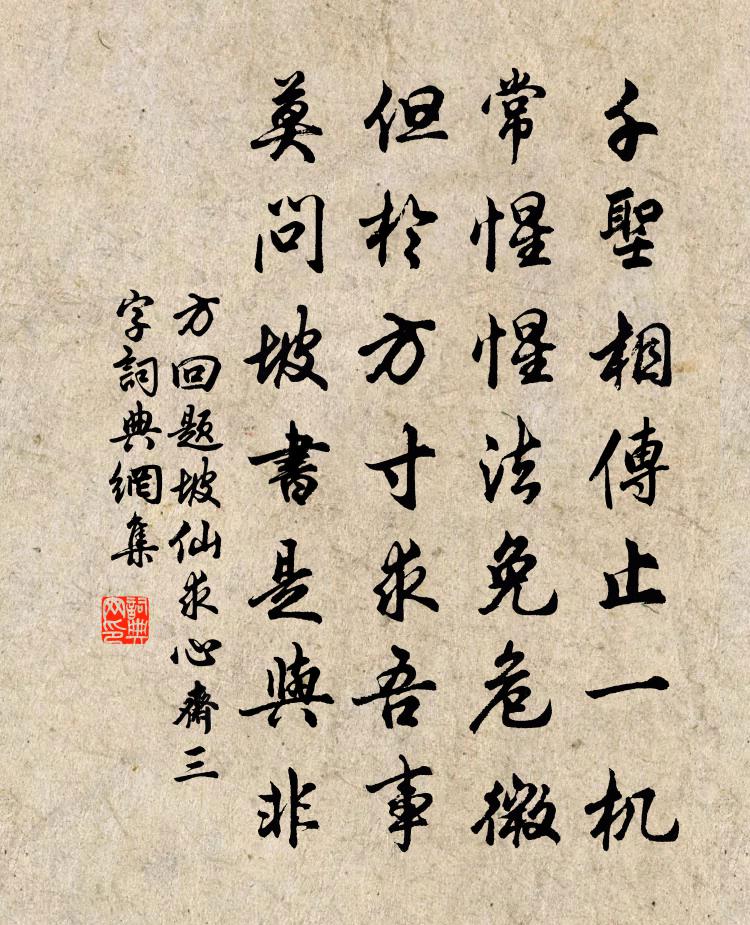 千聖相傳止一机
常惺惺法免危微
但於方寸求吾事
莫問坡書是與非
方回題坡仙求心齋三
字詞典網集
詞典
网印